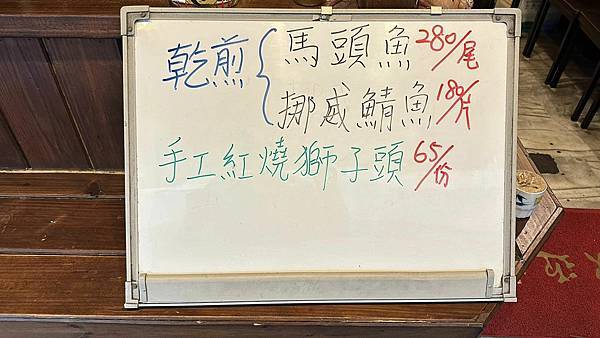 乾煎{馬頭魚280/尾
挪威鯖魚180/片
手工紅燒獅子頭65/份